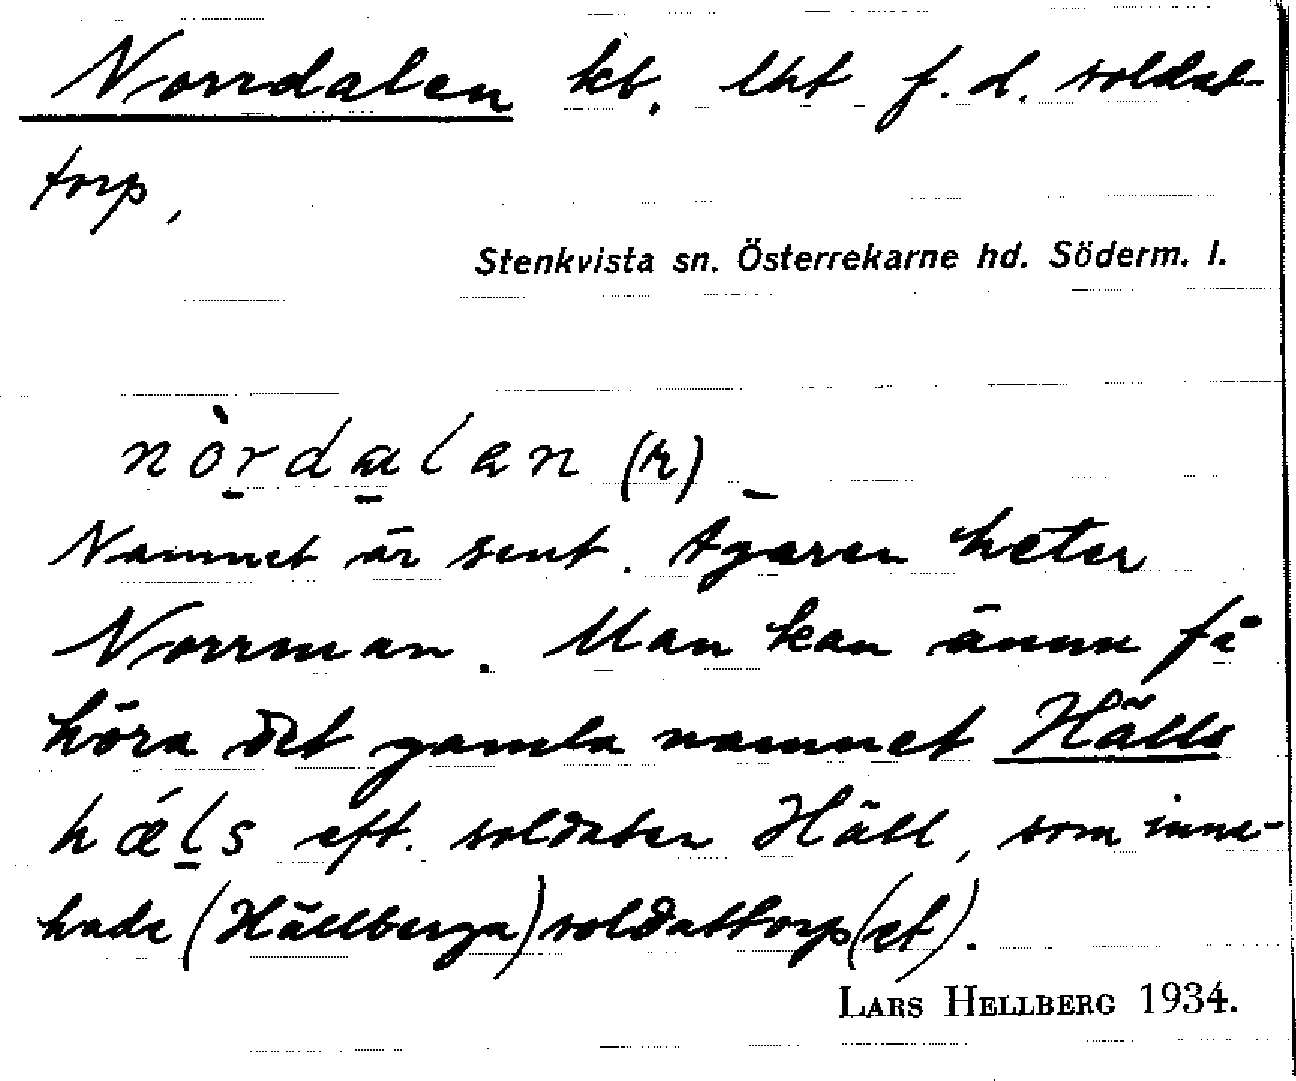 Norrdalen kb. lht f.d. soldat-
torp,
Stenkvista sn. Österrekarne hd. Söderm. l.
nòrdalan (r)
Namnet är sent. Ägaren heter
Norrman. Man kan ännu få
höra det gamla namnet Hälls
hǽls eft. soldaten Häll, som inne-
hade (Hällberga) soldattorp(et).
LARS HELLBERG 1934.